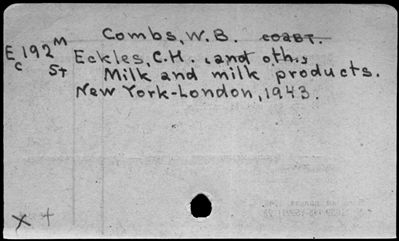 Combs, W.B. coast.
E192M Eckles, C.H. and oth.,
C St Milk and milk products.
New York-London, 1943.
x +